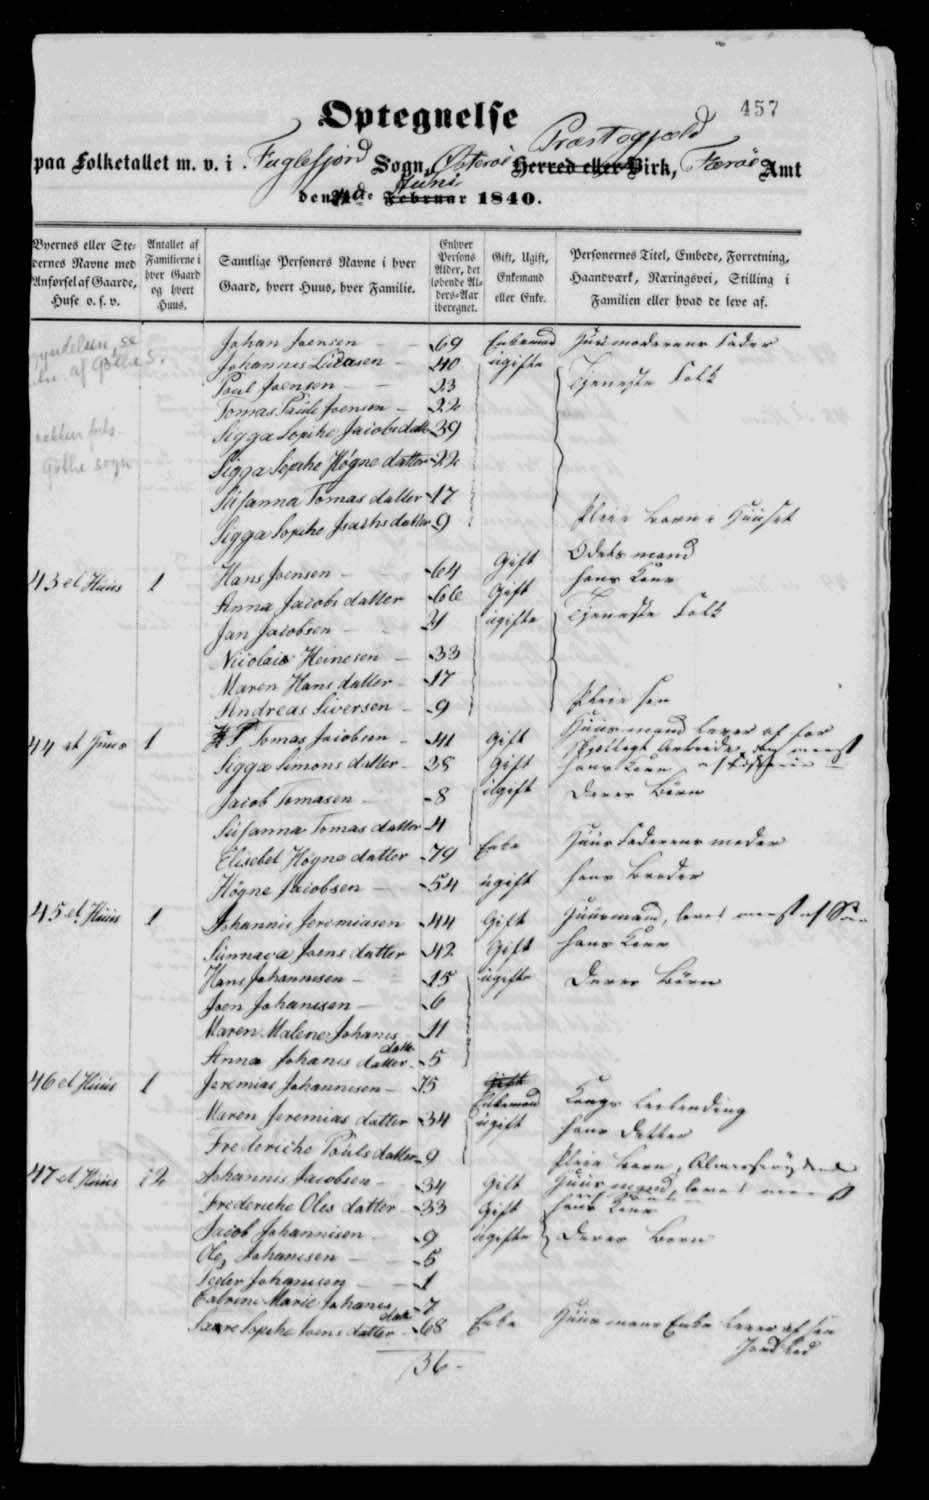 457
Optegnelse
Præstegjæld
paa Folketallet m. v. i Fuglefjord Sogn, Østerøe Herred eller Birk, Færøe Amt
Juni
den de Februar 1840.
Byernes eller Ste-
dernes Navne med
Anførsel af Gaarde,
Huse o. s. v.
Antallet af
Familierne i
hver Gaard
og hvert
Huus.
Samtlige Personers Navne i hver
Gaard, hvert Huus, hver Familie.
Enhver
Persons
Alder, det
løbende Al-
ders-Aar
iberegnet.
Gift, Ugift,
Enkemand
eller Enke.
Personernes Titel, Embede, Forretning,
Haandværk, Næringsvei, Stilling i
Familien eller hvad de leve af.
Johan Joensen 69 Enkemand Huusmoderens Fader
Johannes Lucasen 40 ugifte Tjeneste Folk
Poul Joensen 23
Tomas Pauli Joensen 22
Sigga Sophe Jacobs datter 39
Sigga Sophe Høgne datter 22
Susanna Tomas datter 17
Sigga Sophe datter 9 Pleie barn i Huuset
43 et Huus 1 Hans Joensen 64 Gift Odels mand
Anna Jacobs datter 66 Gift hans Kone
Jan Jacobsen ugifte Tjeneste Folk
Nicolais Heinesen 33
Maren Hans datter 17
Andreas Siversen 9 Pleie søn
44 et Huus 1 Tomas Jacobsen 41 Gift Huusmand lever af for
Sigga Simons datter 28 Gift hans Kone
Jacob Tomasen 8 ugift Deres Børn
Susanna Tomas datter 4
Elisebet Høgne datter 79 Enke Huusfaderens moder
Høgne Jacobsen 54 ugift hans Broder
45 et Huus 1 Johannis Jeremiasen 44 Gift Huusmand, lever meest af
Sunneva Joens datter 42 Gift hans Kone
Hans Johannesen 15 ugifte Deres Børn
Joen Johanesen 6
Maren Malene Johanis
datter 11
Anna Johanes datter 5
46 et Huus 1 Jeremias Johannesen 75 Gift
Enkemand Kongs
Maren Jeremias datter 34 ugift hans Datter
Frederiche Pouls datter 9 Pleie barn,
47 et Huus 2 Johannis Jacobsen 34 Gift Huusmand, lever meest
Frederiche Oles datter 33 Gift hans Kone
Jacob Johannisen 9 ugifte Deres Børn
Ole Johanesen 5
Peder Johannesen 1
Catrine Marie Johanes
datter 7
Sare Sophe Joens datter 68 Enke Huusmans Enke lever af sin
Jord Lod
36